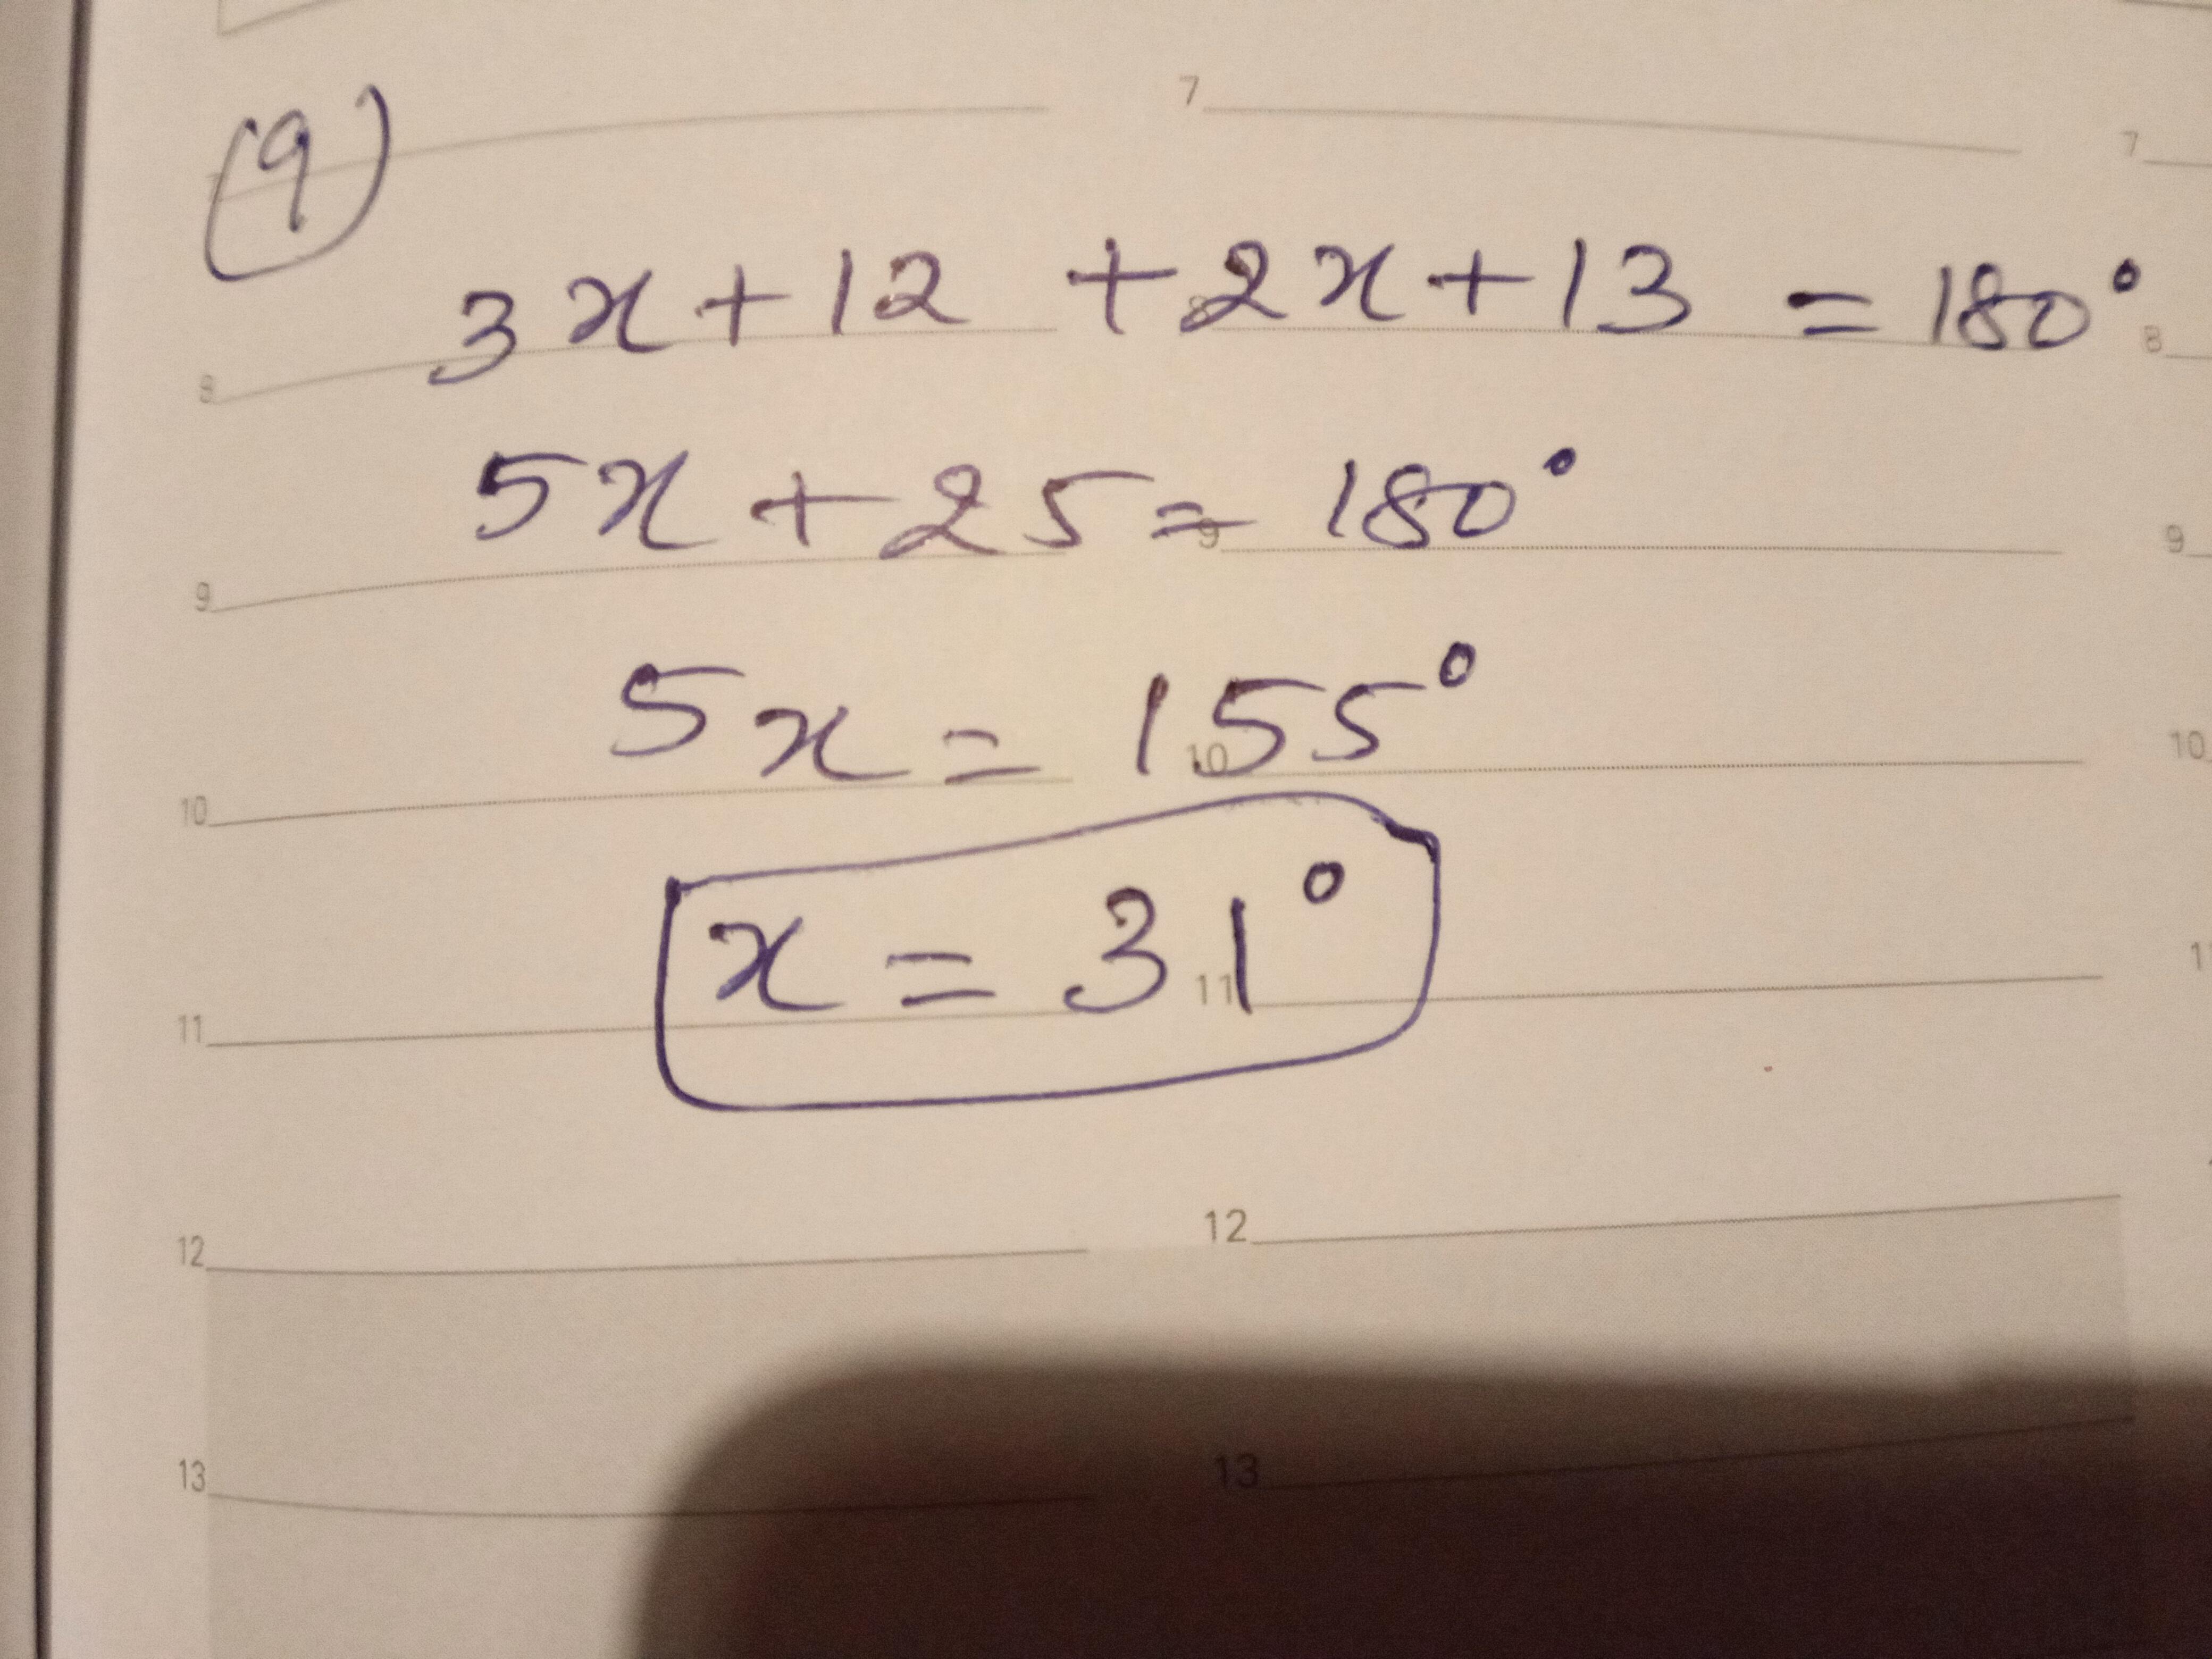 (9)
7
7
3x+12 +2x+13 = 180°
8
8
8
5x+25= 180°
9
9
9
5x = 155°
10
10
10
x = 31°
11
11
12
12
13
13